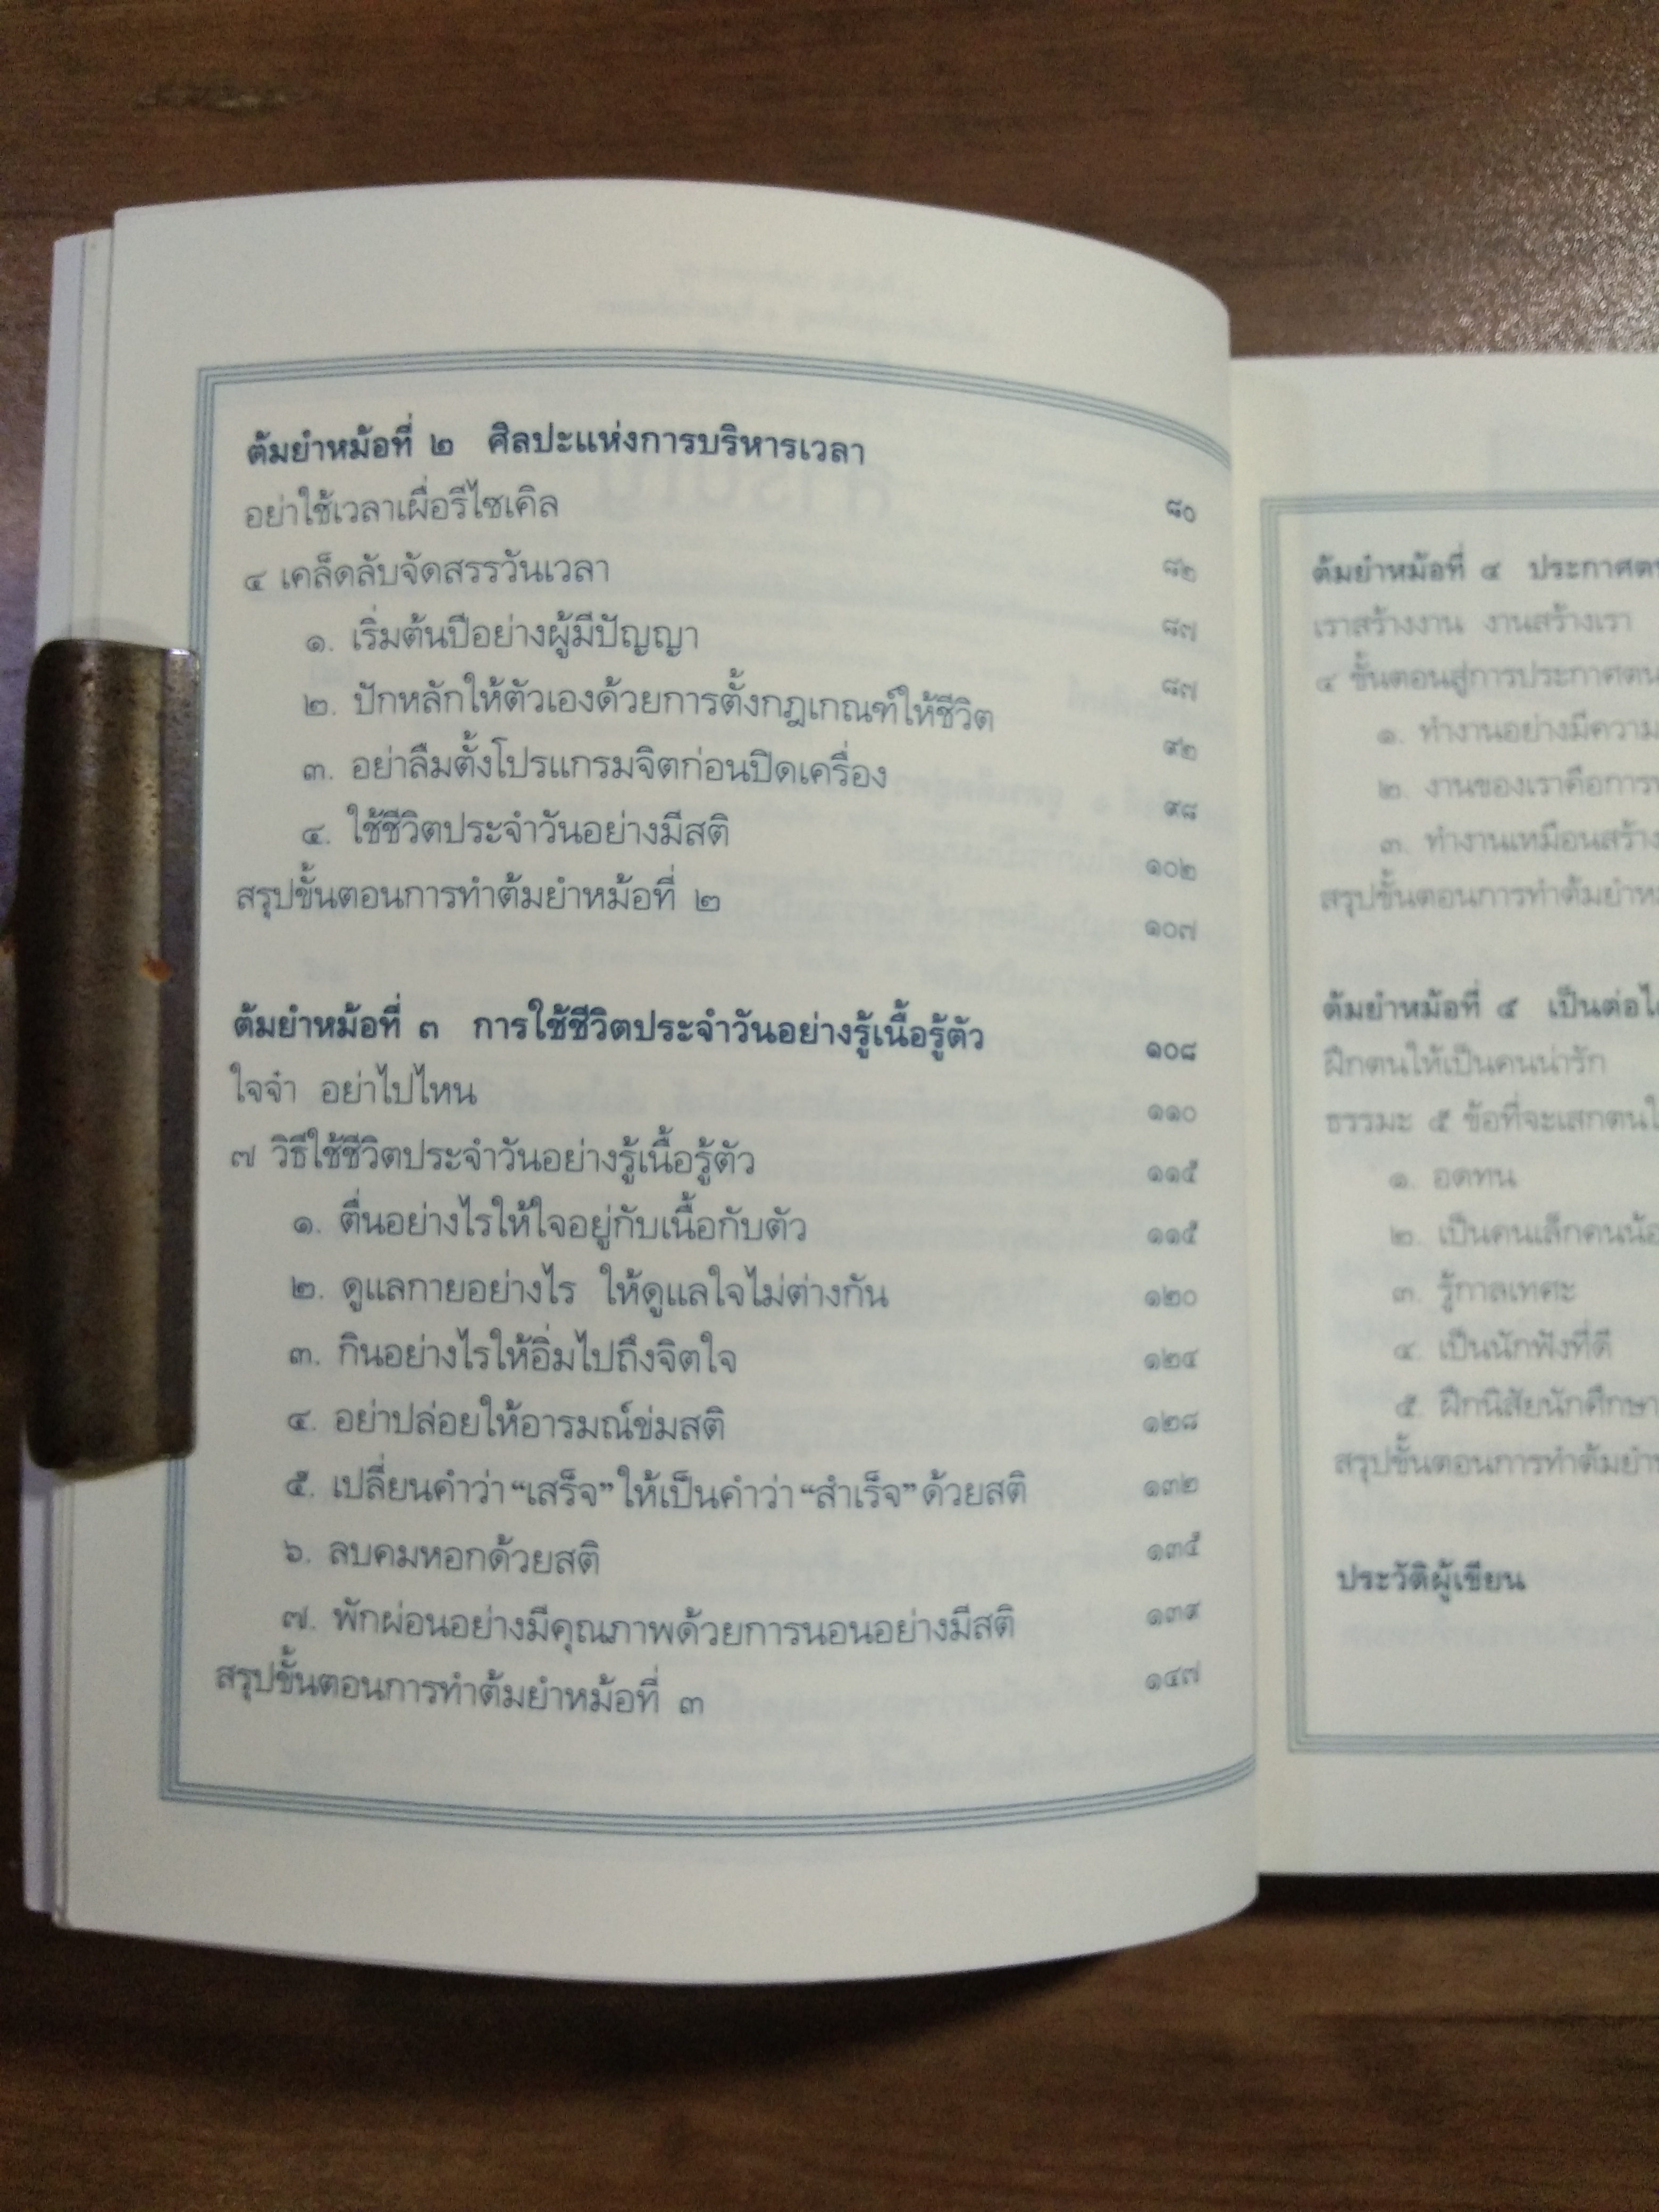 ต้มยำหม้อที่ ๒ ศิลปะแห่งการบริหารเวลา ๘๐
อย่าใช้เวลาเผื่อรีไซเคิล ๘๒
๔ เคล็ดลับจัดสรรวันเวลา ๘๗
๑. เริ่มต้นปีอย่างผู้มีปัญญา ๘๗
๒. ปักหลักให้ตัวเองด้วยการตั้งกฎเกณฑ์ให้ชีวิต ๙๒
๓. อย่าลืมตั้งโปรแกรมจิตก่อนปิดเครื่อง ๙๘
๔. ใช้ชีวิตประจำวันอย่างมีสติ ๑๐๒
สรุปขั้นตอนการทำต้มยำหม้อที่ ๒ ๑๐๗
ต้มยำหม้อที่ ๓ การใช้ชีวิตประจำวันอย่างรู้เนื้อรู้ตัว ๑๐๘
ใจจ๋า อย่าไปไหน ๑๑๐
๗ วิธีใช้ชีวิตประจำวันอย่างรู้เนื้อรู้ตัว ๑๑๕
๑. ตื่นอย่างไรให้ใจอยู่กับเนื้อกับตัว ๑๑๕
๒. ดูแลกายอย่างไร ให้ดูแลใจไม่ต่างกัน ๑๒๐
๓. กินอย่างไรให้อิ่มไปถึงจิตใจ ๑๒๔
๔. อย่าปล่อยให้อารมณ์ข่มสติ ๑๒๘
๕. เปลี่ยนคำว่า “เสร็จ” ให้เป็นคำว่า “สำเร็จ” ด้วยสติ ๑๓๒
๖. ลบคมหอกด้วยสติ ๑๓๕
๗. พักผ่อนอย่างมีคุณภาพด้วยการนอนอย่างมีสติ ๑๓๙
สรุปขั้นตอนการทำต้มยำหม้อที่ ๓ ๑๔๗
ต้มยำหม้อที่ ๔ ประกาศต
เราสร้างงาน งานสร้างเรา
๔ ขั้นตอนสู่การประกาศตน
๑. ทำงานอย่างมีความ
๒. งานของเราคือการ
๓. ทำงานเหมือนสร้าง
สรุปขั้นตอนการทำต้มยำ
ต้มยำหม้อที่ ๕ เป็นต่อ
ฝึกตนให้เป็นคนน่ารัก
ธรรมะ ๕ ข้อที่จะเสกตน
๑. อดทน
๒. เป็นคนเล็กคนน้อ
๓. รู้กาลเทศะ
๔. เป็นนักฟังที่ดี
๕. ฝึกนิสัยนักศึกษา
สรุปขั้นตอนการทำต้มยำ
ประวัติผู้เขียน